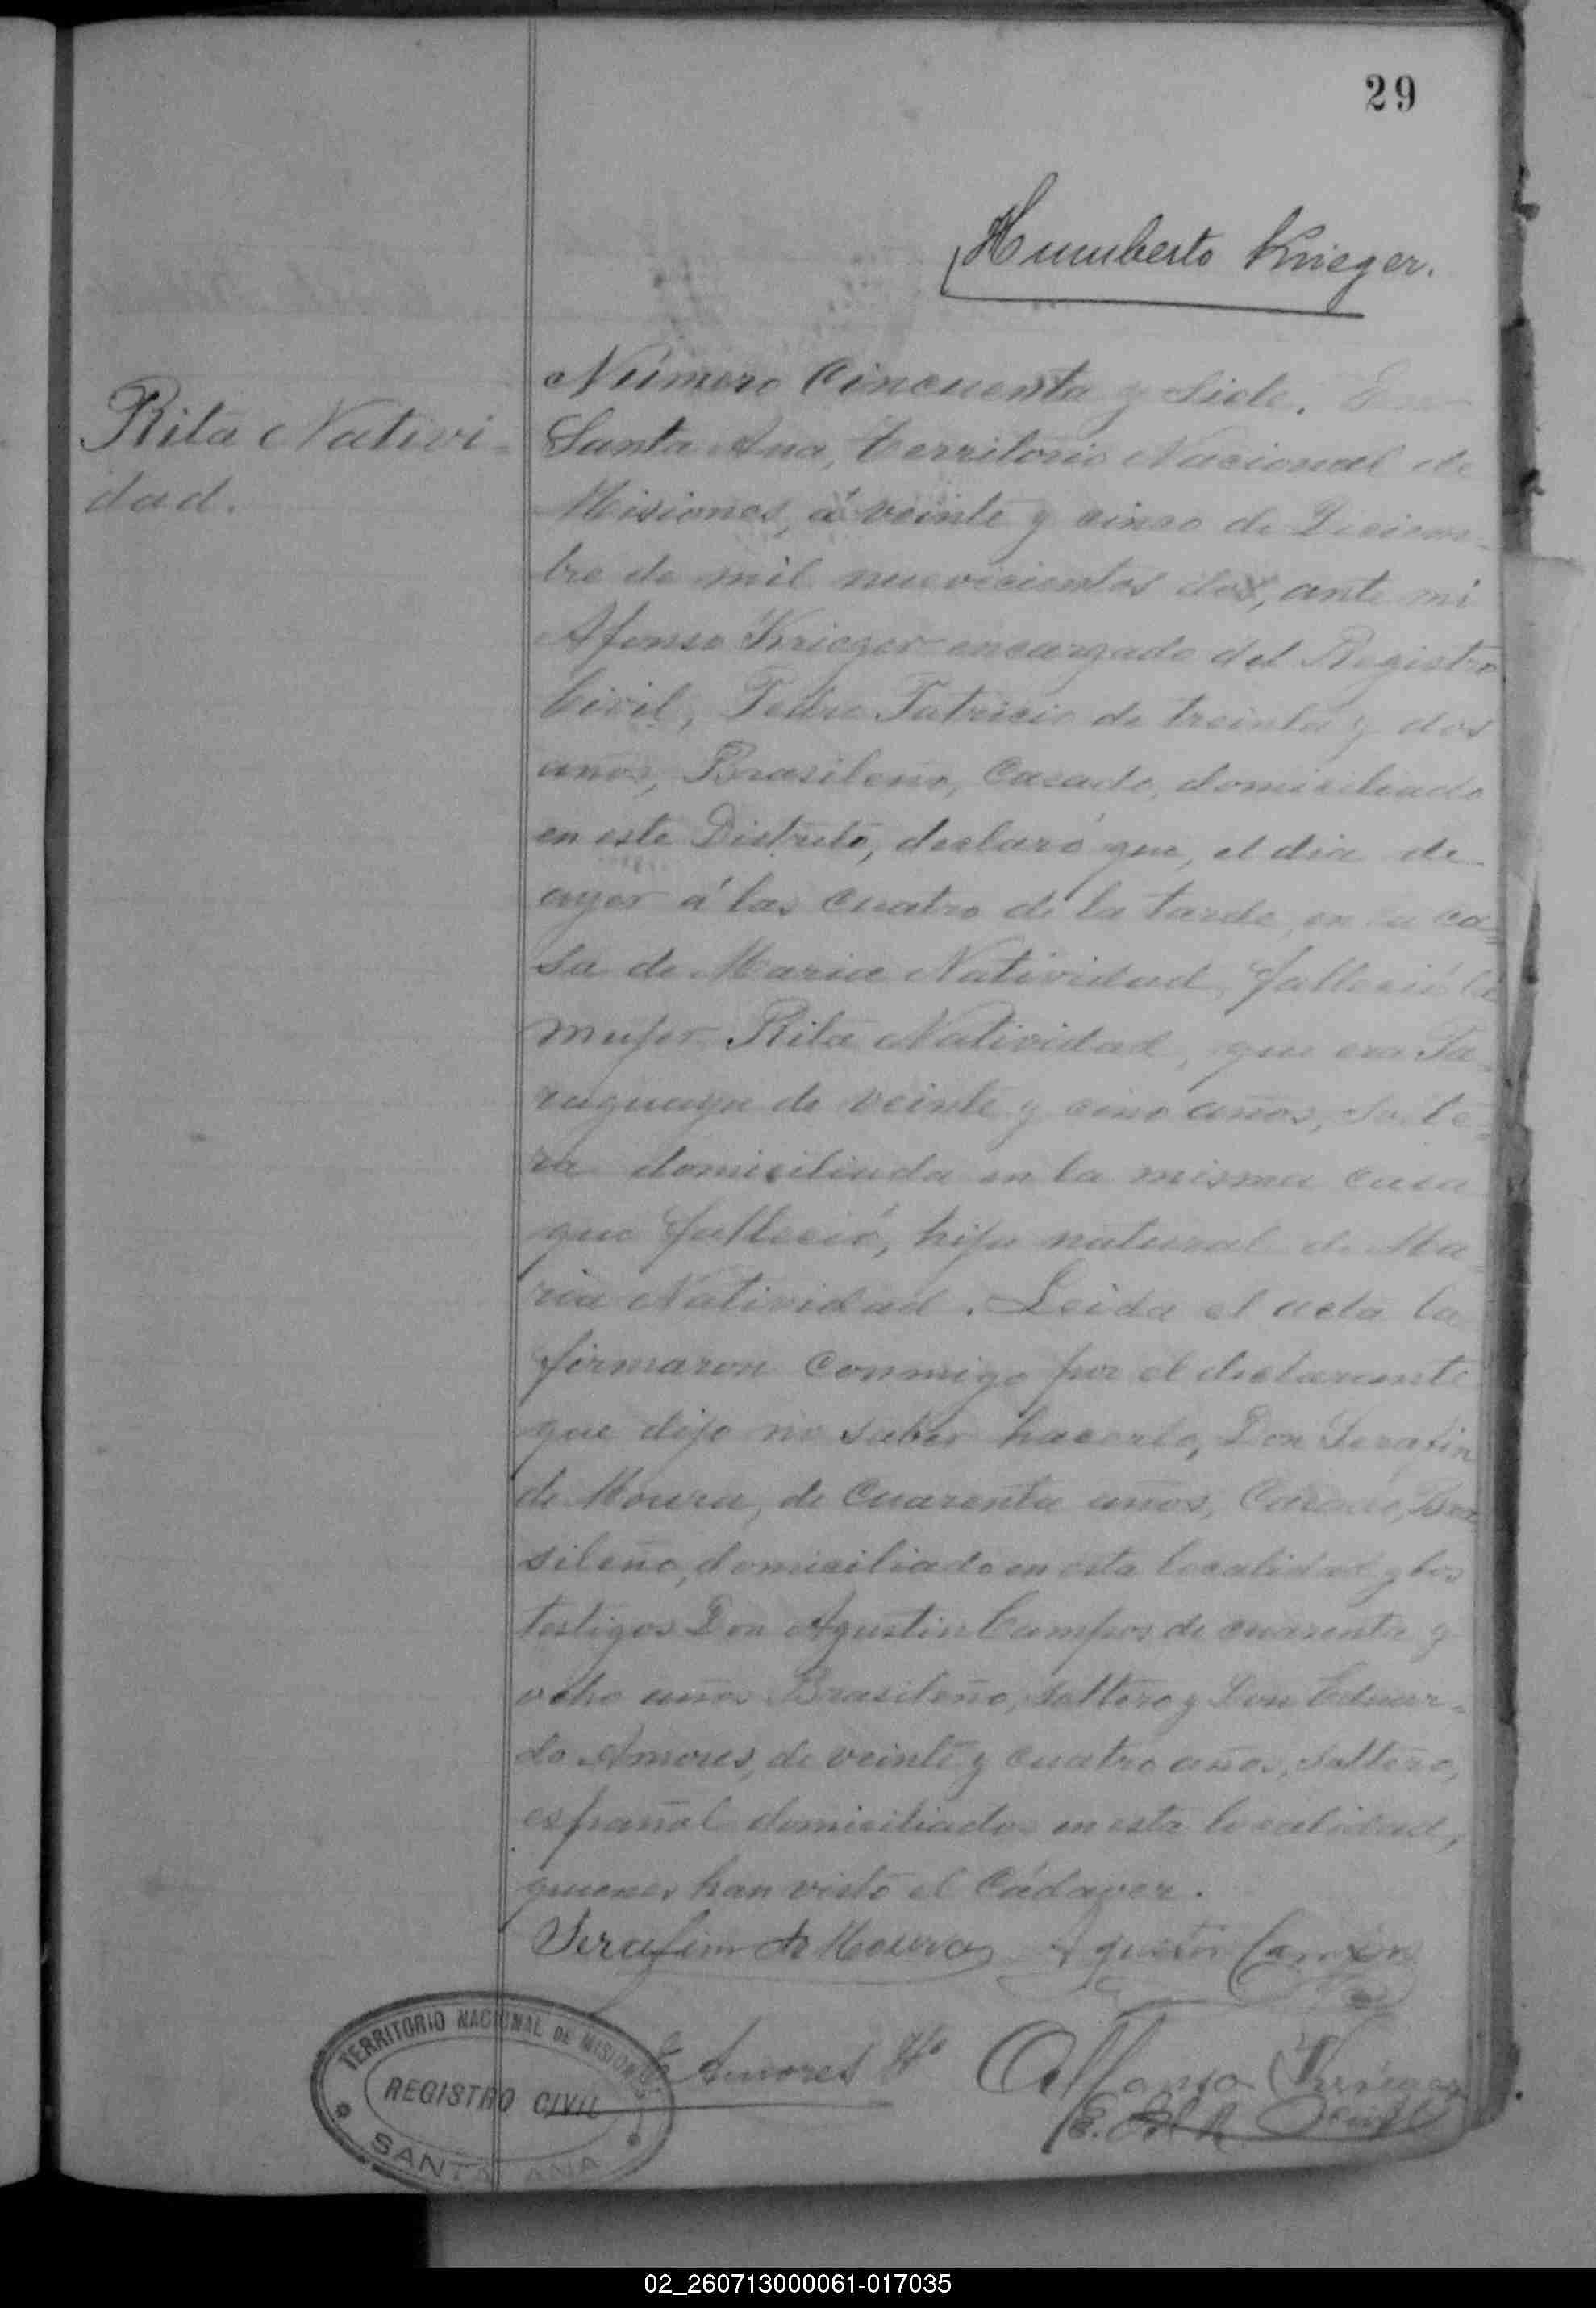 29
Humberto Krieger.
Rita Nativi-
dad.
Número Cincuenta y Siete. En
Santa Ana, Territorio Nacional de
Misiones, á veinte y cinco de Diciem-
bre de mil nuevecientos dos, ante mi
Afonso Krieger encargado del Registro
Civil, Pedro Patricio de treinta y dos
años, Brasileño, Casado, domiciliado
en este Distrito, declaró que, el dia de
ayer á las cuatro de la tarde, en la ca-
sa de Maria Natividad falleció la
mujer Rita Natividad, que era Pa-
raguaya de veinte y cinco años, solte-
ra domiciliada en la misma casa
que falleció, hija natural de Ma-
ria Natividad. Leida el acta la
firmaron conmigo por el declarante
que dijo no saber hacerlo, Don Serafin
de Moura, de Cuarenta años, Casado, Bra
sileño, domiciliado en esta localidad y los
testigos Don Agustin Campos de cuarenta y
ocho años Brasileño, soltero y Don Eduar-
do Amores, de veinte y cuatro años, soltero,
español domiciliados en esta localidad,
quienes han visto el Cádaver.
Serafim de Moura Agustin
E. Amores Alfonso Krieger
E. del R. Civil
TERRITORIO NACIONAL DE MISIONES
REGISTRO CIVIL
SANTA ANA
02_260713000061-017035